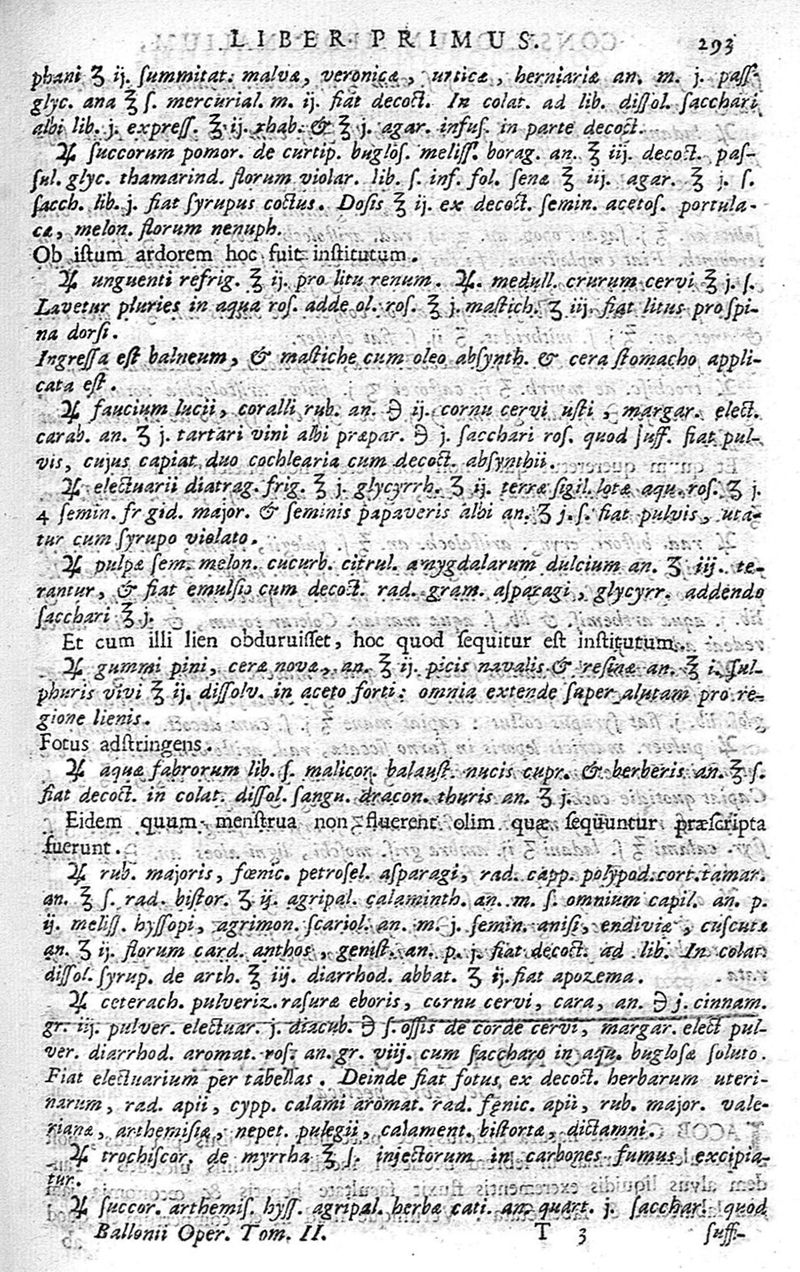 LIBER PRIMUS. 293
phani ʒ ij. summitat. malvæ, veronicæ, urticæ, herniariæ an. m. j. pass.
glyc. ana ℥ ſ. mercurial. m. ij. fiat decoct. In colat. ad lib. dissol. sacchari
albi lib. j. express. ℥ ij. rhab. & ℥ j. agar. infus. in parte decoct.
♃ succorum pomor. de curtip. buglos. meliss. borag. an. ℥ iij. decoct. pas-
sul. glyc. thamarind. florum violar. lib. ſ. inf. fol. senæ ℥ iij. agar. ℥ j. ſ.
sacch. lib. j. fiat syrupus coctus. Dosis ℥ ij. ex decoct. semin. acetos. portula-
cæ, melon. florum nenuph.
Ob istum ardorem hoc fuit institutum.
♃ unguenti refrig. ℥ ij. pro litu renum. ♃. medull. crurum cervi ℥ j. ſ.
Lavetur pluries in aqua ros. adde ol. ros. ℥ j. mastich. ʒ iij. fiat litus pro spi-
na dorsi.
Ingressa est balneum, & mastiche cum oleo absynth. & cera stomacho appli-
cata est.
♃ faucium lucii, coralli rub. an. ℈ ij. cornu cervi usti, margar. elect.
carab. an. ʒ j. tartari vini albi præpar. ℈ j. sacchari ros. quod suff. fiat pul-
vis, cujus capiat duo cochlearia cum decoct. absynthii.
♃ electuarii diatrag. frig. ℥ j. glycyrrh. ʒ ij. terræ sigil. lotæ aqu. ros. ʒ j.
4 semin. frgid. major. & seminis papaveris albi an. ʒ j. ſ. fiat pulvis, uta-
tur cum syrupo violato.
♃ pulpæ sem. melon. cucurb. citrul. amygdalarum dulcium an. ʒ iij. te-
rantur, & fiat emulsio cum decoct. rad. gram. asparagi, glycyrr. addendo
sacchari ℥ j.
Et cum illi lien obduruisset, hoc quod sequitur est institutum.
♃ gummi pini, ceræ novæ, an. ℥ ij. picis navalis & resinæ an. ℥ i. sul-
phuris vivi ℥ ij. dissolv. in aceto forti: omnia extende super alutam pro re-
gione lienis.
Fotus adstringens.
♃ aquæ fabrorum lib. ſ. malicor. balaust. nucis cupr. & berberis an. ℥ ſ.
fiat decoct. in colat. dissol. sangu. dracon. thuris an. ʒ j.
Eidem quum menstrua non fluerent olim quæ sequuntur præscripta
fuerunt.
♃ rub. majoris, fœnic. petrosel. asparagi, rad. capp. polypod. cort. tamar.
an. ℥ ſ. rad. bistor. ʒ ij. agripal. calaminth. an. m. ſ. omnium capil. an. p.
ij. meliss. hyssopi, agrimon. scariol. an. m. j. semin. anisi, endiviæ, cuscutæ
an. ʒ ij. florum card. anthos, genist. an. p. j. fiat decoct. ad lib. In colat.
dissol. syrup. de arth. ℥ iij. diarrhod. abbat. ʒ ij. fiat apozema.
♃ ceterach. pulveriz. rasuræ eboris, cornu cervi, cara, an. ℈ j. cinnam.
gr. iij. pulver. electuar. j. diacub. ℈ ſ. ossis de corde cervi, margar. elect pul-
ver. diarrhod. aromat. ros. an. gr. viij. cum saccharo in aqu. buglosæ soluto.
Fiat electuarium per tabellas. Deinde fiat fotus ex decoct. herbarum uteri-
narum, rad. apii, cypp. calami aromat. rad. fenic. apii, rub. major. vale-
rianæ, arthemisiæ, nepet. pulegii, calament. bistortæ, dictamni.
♃ trochiscor. de myrrha ℥ ſ. injectorum in carbones fumus excipia-
tur.
♃ succor. arthemis. hyss. agripal. herbæ cati. an. quart. j. sacchar. quod
Ballonii Oper. Tom. II. T 3 suff.-